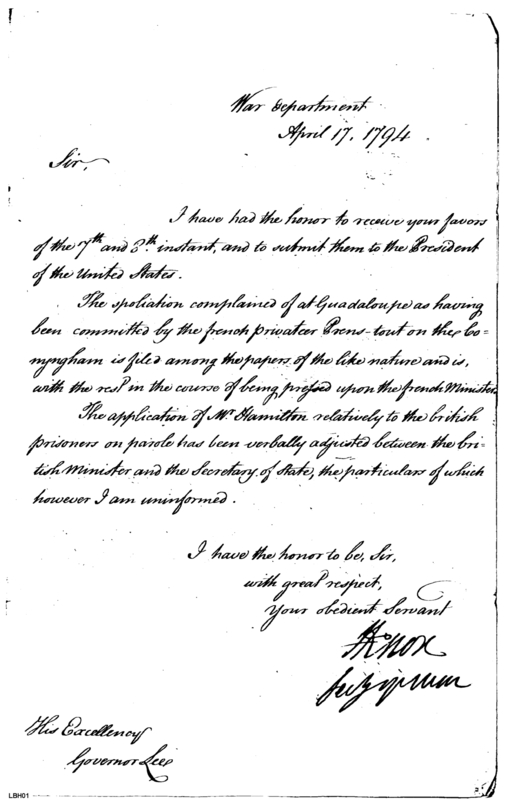 War Department
April 17, 1794.
Sir,
I have had the honor to receive your favors
of the 7th and 8th instant, and to submit them to the President
of the United States.
The spoliation complained of at Guadaloupe as having
been committed by the french privateer Prens-tout on the Co-
nyngham is filed among the papers of the like nature and is,
with the rest in the course of being pressed upon the french Minister.
The application of Mr. Hamilton relatively to the british
prisoners on parole has been verbally adjusted between the bri-
tish Minister and the Secretary of State, the particulars of which
however I am uninformed.
I have the honor to be, Sir,
with great respect,
Your obedient Servant
HKnox
secy of war
His Excellency
Governor Lee
LBH01